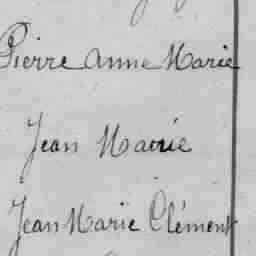 Pierre Anne Marie
Jean Marie
Jean Marie Clément